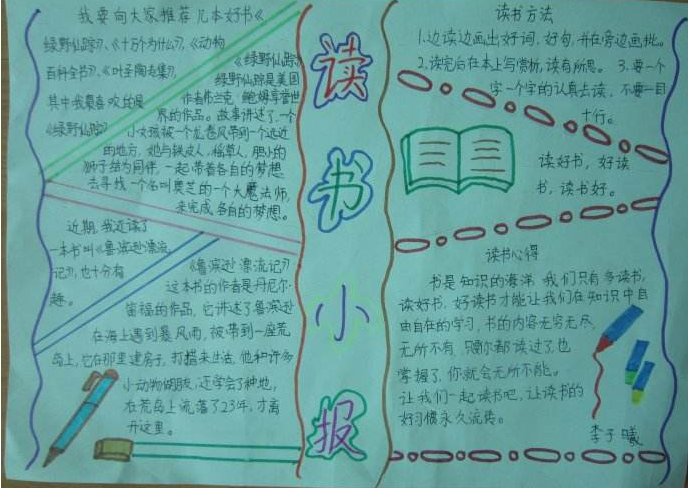 我要向大家推荐几本好书《
绿野仙踪》、《十万个为什么》、《动物
百科全书》、《叶子陶去集》,
其中我最喜欢的是
《绿野仙踪》
《绿野仙踪
绿野仙踪是美国
作者弗兰克·鲍姆享誉世
界的作品。故事讲述了,一个
小女孩被一个龙卷风带到一个遥远
的地方,她与铁皮人、稻草人,胆小的
狮子结为同伴,一起带着各自的梦想
去寻找一个名叫奥芝的一个大魔法师,
来完成各自的梦想。
近期,我还读了
一本书叫《鲁滨逊漂流
记》,也十分有
趣。
《鲁滨逊漂流记》
这本书的作者是丹尼尔·
笛福的作品,它讲述了鲁滨逊
在海上遇到暴风雨,被带到一座荒
岛上,它在那里建房子,打猎来生活,他和许多
小动物做朋友,还学会了种地,
在荒岛上流落了23年,才离
开这里。
读
书
小
报
读书方法
1.边读边画出好词、好句,并在旁边画批。
2.读完后在本上写赏析,读有所思。3.要一个
字一个字的认真去读,不要一目
十行。
读好书,好读
书,读书好。
读书心得
书是知识的海洋,我们只有多读书,
读好书,好读书才能让我们在知识中自
由自在的学习,书的内容无穷无尽,
无所不有,只要你都读过了,也
掌握了,你就会无所不能。
让我们一起读书吧,让读书的
好习惯永久流传。
李子曦